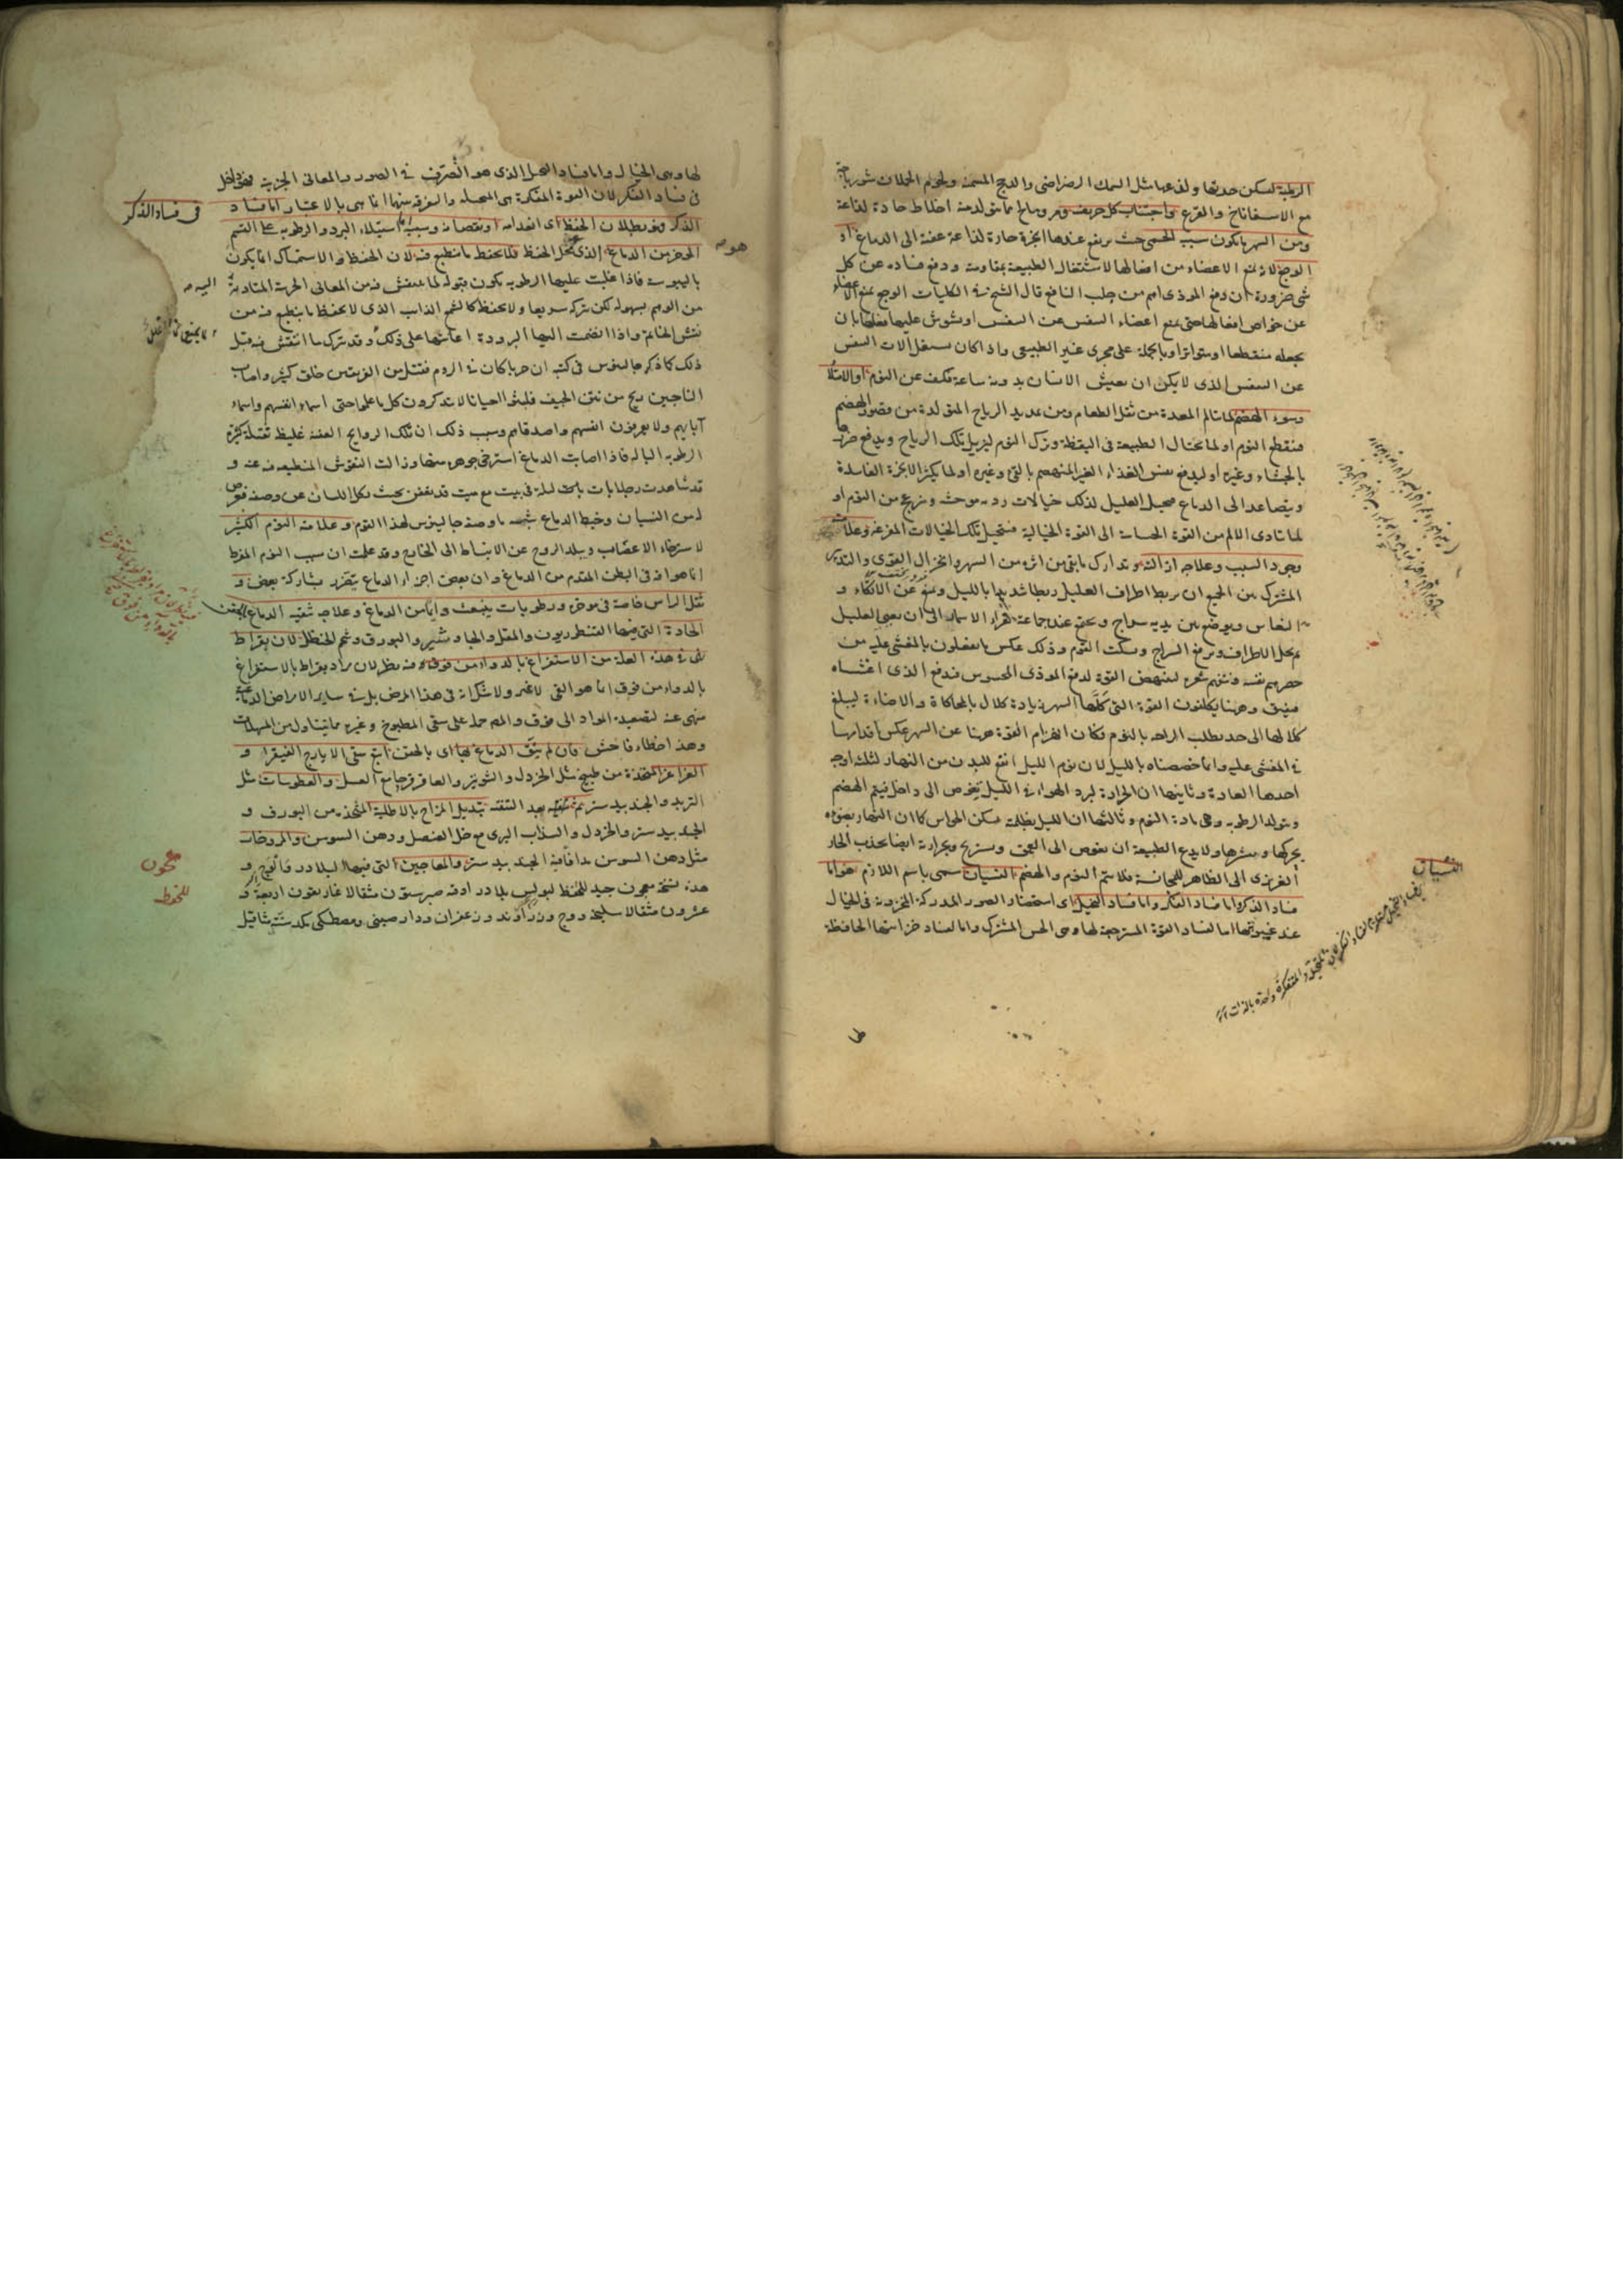 الرطبة لتسكن حدتها ولذعها مثل السمك الرضراضى والدجاج المسمنة ولحوم الحملان شورباجة
مع الاسفاناخ والقرع واجتناب كل حريف ومر ومالح مما يتولد منه اخلاط حادة لذاعة
ومن السهر ما يكون سبب الحمى حيث يرتفع عندها ابخرة حارة لذاعة عفنة الى الدماغ او
الوجع لانه يمنع الاعضاء من افعالها لاشتغال الطبيعة بمقاومته ودفع فساده عن كل
شى ضرورة ان دفع الموذى اهم من جلب النافع قال الشيخ فى الكليات الوجع يمنع الاعضاء
عن خواص افعالها حتى يمنع اعضاء التنفس عن التنفس او يشوش عليها فعلها بان
يجعله منقطعا او متواترا وبالجملة على مجرى غير الطبيعى واذا كان يشغل آلات التنفس
عن التنفس الذى لا يمكن ان يعيش الانسان بدونه ساعة فكيف عن النوم او الامتلاء
وسوء الهضم لما تألم المعدة من ثقل الطعام ومن تمديد الرياح المتولدة من قصور الهضم
فينقطع النوم او لما تحتال الطبيعة فى اليقظة وترك النوم ليزيل تلك الرياح ويدفع ضررها
بالجشاء وغيره او ليدفع بعض الغذاء الغير المنهضم بالقئ وغيره او لما يكثر الابخرة الفاسدة
ويتصاعد الى الدماغ فيخيل العليل لذلك خيالات ردية موحشة ويزعج من النوم او
لما تادى الالم من القوة الحساسة الى القوة الخيالية فتتخيل تلك الخيالات المفزعة وعلامته
وجود السبب وعلاجه ازالته وتدارك ما بقى من اثره من السهر وانخزال القوى والتدبير
المشترك بين الجميع ان يربط اطراف العليل ربطا شديدا بالليل ويمنع عن الاتكاء و
النعاس ويوضع بين يديه سراج ويجتمع عنده جماعة لقراءة الاسمار الى ان يعيى العليل
ثم يحل الاطراف ويرفع السراج ويسكت القوم وذلك عكس ما يفعلون بالمغشى عليه من
حصرهم نفسه ونتفهم شعره لينهض القوة لدفع الموذى المحسوس فتدفع الذى اغشاه
فيفيق وههنا يكلفون القوة التى كلها السهر زيادة كلال بالمحاكاة والاضاءة ليبلغ
كلالها الى حد يطلب الراحة بالنوم فكان انهزام القوة ههنا عن السهر عكس اقدارها
فى المغشى عليه وانما خصصناه بالليل لان نوم الليل انفع للبدن من النهار لثلثة اوجه
احدها العادة وثانيها ان الحرارة لبرد الهواء فى الليل يغوص الى داخل فيتم الهضم
ويتولد الرطوبة وهى مادة النوم وثالثها ان الليل بظلمته يسكن الحواس كما ان النهار بضوئه
يحركها وينشرها ولا يدع الطبيعة ان يغوص الى العمق ويستريح وبحرارته ايضا يجذب الحار
الغريزى الى الظاهر للمجانسة فلا يتم النوم والهضم النسيان يسمى باسم اللازم هو اما
فساد الذكر واما فساد الفكر واما فساد التخيل اى استحضار الصور المدركة المخزونة فى الخيال
عند غيبوبتها اما لفساد القوة المسترجعة لها وهى الحس المشترك واما لفساد خزانتها الحافظة
النسيان
لها وهى الخيال واما فساد التخيل الذى هو التصرف فى الصور والمعانى الجزئية فهو داخل
فى فساد الفكر لان القوة المفكرة هى المتخيلة والتفرقة بينهما انما هى بالاعتبار اما فساد
فى فساد الذكر
الذكر وهو بطلان الحفظ اى انعدامه او نقصانه وسببه اما استيلاء البرد والرطوبة على القسم
الموخر من الدماغ الذى هو محل الحفظ فلا يحفظ ما ينطبع فيه لان الحفظ والاستمساك انما يكون
باليبوسة فاذا غلبت عليها الرطوبة يكون قبوله لما ينتقش فيه من المعانى الجزئية المتادية
اليه
من الوهم بسهولة لكن يتركه سريعا ولا يحفظ كالشمع الذايب الذى لا يحفظ ما ينطبع فيه من
نقش الخاتم واذا انضمت اليها البرودة اعانتها على ذلك وقد يترك ما انتقش فيه قبل
ذلك كما ذكر جالينوس فى كتبه ان حربا كان فى الروم فقتل من الفريقين خلق كثير واصاب
الناجين ريح من نتن الجيف فلبثوا احيانا لا يتذكرون كل ما علموا حتى اسماء انفسهم واسماء
آبائهم ولا يعرفون انفسهم واصدقاءهم وسبب ذلك ان تلك الروايح العفنة غليظة ثقيلة كثيرة
الرطوبة البالة فاذا اصابت الدماغ استرخى جوهره منها وزالت النقوش المنطبعة فيه عنه و
قد شاهدت رجلا بات ليلة فى بيت مع ميت قد تعفن بحيث يكل اللسان عن وصفه فعرض
له من النسيان وخبط الدماغ شبيه ما وصفه جالينوس لهذا القوم وعلامته النوم الكثير
لاسترخاء الاعصاب وتبلد الروح عن الانبساط الى الخارج وقد علمت ان سبب النوم المفرط
انما هو آفة فى البطن المقدم من الدماغ وان بعض اجزاء الدماغ يتضرر بمشاركة بعض و
ثقل الراس خاصة فى موخره ورطوبات ينبعث دايما من الدماغ وعلاجه تنقية الدماغ بالحقن
الحادة التى فيها القنطوريون والمقل والجاوشير والبورق وشحم الحنظل لان بقراط
نهى فى هذه العلة من الاستفراغ بالدواء من فوق وفيه نظر لان مراد بقراط بالاستفراغ
بالدواء من فوق انما هو القئ لا غير ولا شك انه فى هذا المرض بل فى ساير الامراض الدماغية
منهى عنه لتصعيده المواد الى فوق والمصنف حمله على سقى المطبوخ وغيره مما يتناول من المسهلات
وهذا خطاء فاحش فان لم ينق الدماغ بها اى بالحقن اتبع سقى الايارج الفيقرا و
الغراغر المتخذة من طبيخ مثل الخردل والشونيز والعاقرقرحا مع العسل والعطوسات مثل
التربد والجندبيدستر ثم بعد التنقية تبديل المزاج بالاطلية المتخذة من البورق و
الجندبيدستر والخردل والسذاب البرى مع خل العنصل ودهن السوسن والمروخات
مثل دهن السوسن مدافا فيه الجندبيدستر والمعاجين التى فيها البلادر والوج و
هذه نسخة معجون جيد للحفظ لبولس بلادر اوقية صبر ستون مثقالا غاريقون اربعة و
عشرون مثقالا سليخة ووج وزراوند وزعفران ودارصينى ومصطكى يكد ستة مثاقيل
معجون
للحفظ